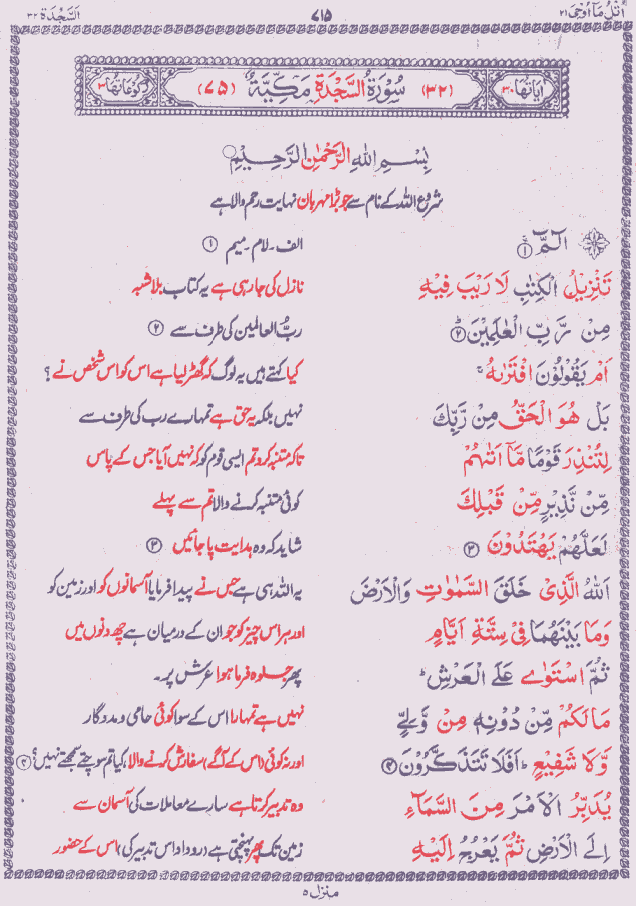 اتل ما اوحی ۲۱ ۷۱۵ السجدة ۳۲
اٰیاتها ۳۰ (۳۲) سُوْرَةُ السَّجْدَةِ مَكِّيَّةٌ (۷۵) رکوعاتها ۳
بِسْمِ اللّٰهِ الرَّحْمٰنِ الرَّحِيْمِ
شروع اللہ کے نام سے جو بڑا مہربان نہایت رحم والا ہے
الٓمّٓ ۚ ۱ الف۔ لام۔ میم ۱
تَنْزِيْلُ الْكِتٰبِ لَا رَيْبَ فِيْهِ نازل کی جا رہی ہے یہ کتاب بلا شبہ
مِنْ رَّبِّ الْعٰلَمِيْنَ ؕ ۲ ربُّ العالمین کی طرف سے ۲
اَمْ يَقُوْلُوْنَ افْتَرٰىهُ ۚ کیا کہتے ہیں یہ لوگ کہ گھڑ لیا ہے اس کو اس شخص نے ؟
بَلْ هُوَ الْحَقُّ مِنْ رَّبِّكَ نہیں بلکہ یہ حق ہے تمہارے رب کی طرف سے
لِتُنْذِرَ قَوْمًا مَّاۤ اَتٰىهُمْ تاکہ متنبہ کرو تم ایسی قوم کو کہ نہیں آیا جس کے پاس
مِّنْ نَّذِيْرٍ مِّنْ قَبْلِكَ کوئی متنبہ کرنے والا تم سے پہلے
لَعَلَّهُمْ يَهْتَدُوْنَ ۳ شاید کہ وہ ہدایت پا جائیں ۳
اَللّٰهُ الَّذِيْ خَلَقَ السَّمٰوٰتِ وَالْاَرْضَ یہ اللہ ہی ہے جس نے پیدا فرمایا آسمانوں کو اور زمین کو
وَمَا بَيْنَهُمَا فِيْ سِتَّةِ اَيَّامٍ اور ہر اس چیز کو جو ان کے درمیان ہے چھ دنوں میں
ثُمَّ اسْتَوٰى عَلَى الْعَرْشِ ؕ پھر جلوہ فرما ہوا عرش پر۔
مَا لَكُمْ مِّنْ دُوْنِهٖ مِنْ وَّلِيٍّ نہیں ہے تمہارا اس کے سوا کوئی حامی و مددگار
وَّلَا شَفِيْعٍ ؕ اَفَلَا تَتَذَكَّرُوْنَ ۴ اور نہ کوئی (اس کے آگے) سفارش کرنے والا، کیا تم سوچتے سمجھتے نہیں؟ ۴
يُدَبِّرُ الْاَمْرَ مِنَ السَّمَآءِ وہ تدبیر کرتا ہے سارے معاملات کی آسمان سے
اِلَى الْاَرْضِ ثُمَّ يَعْرُجُ اِلَيْهِ زمین تک پھر پہنچتی ہے (روداد اس تدبیر کی) اس کے حضور
منزل ۵